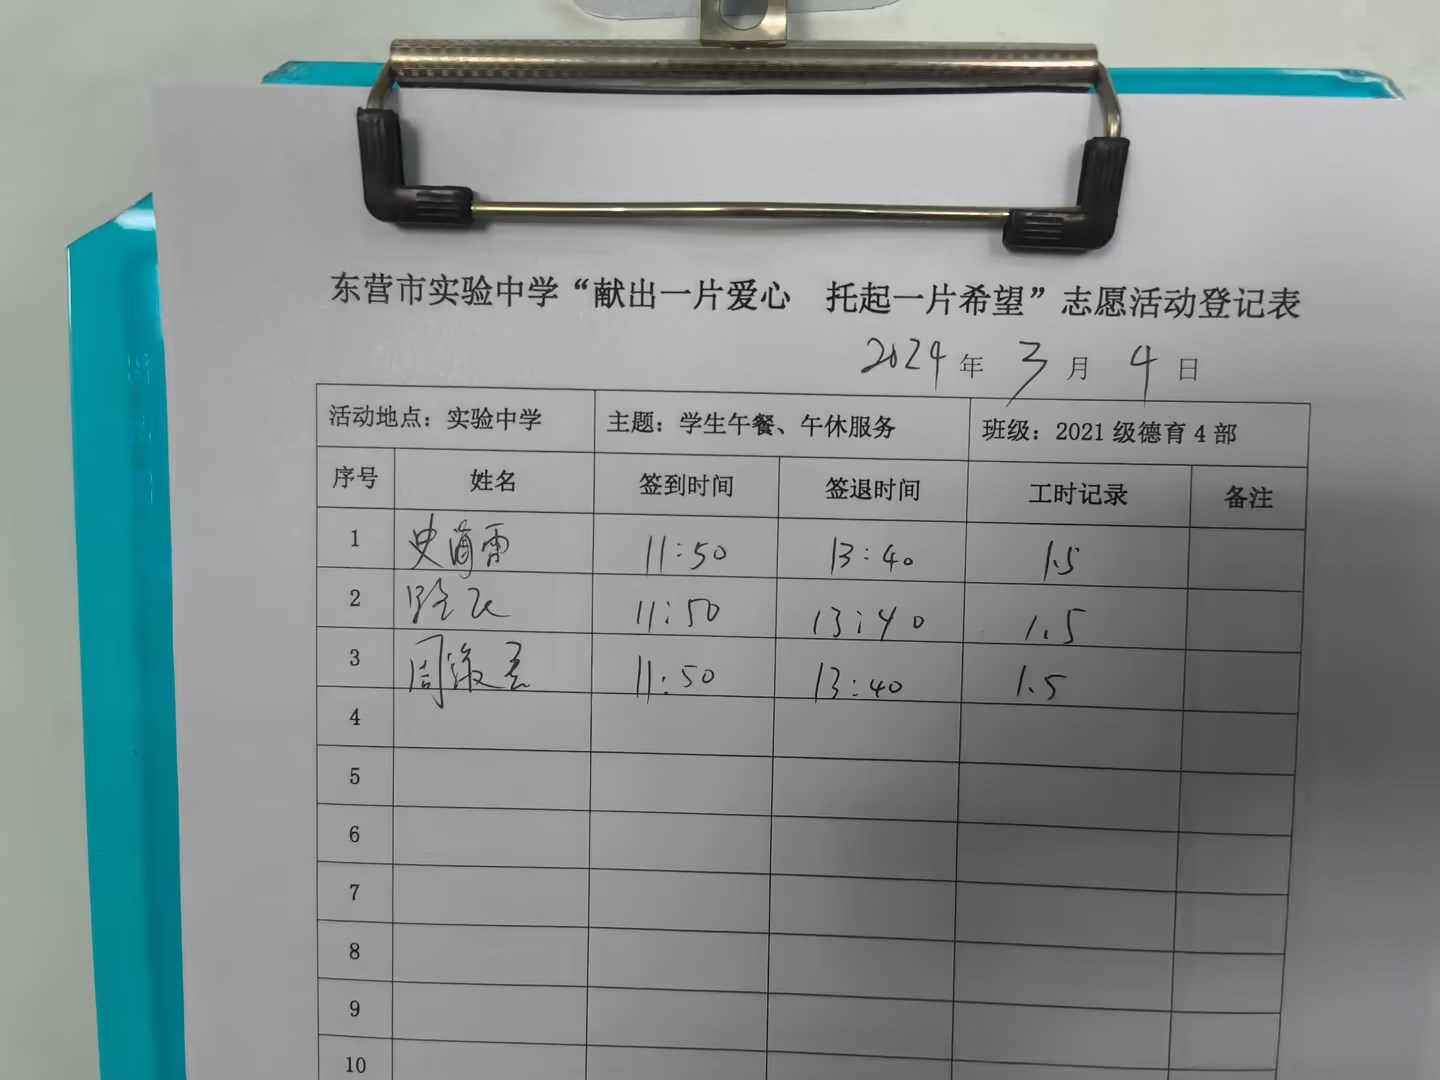 东营市实验中学“献出一片爱心 托起一片希望”志愿活动登记表
2024年 3月 4日
活动地点：实验中学 主题：学生午餐、午休服务 班级：2021级德育4部
序号 姓名 签到时间 签退时间 工时记录 备注
1 史海雷 11:50 13:40 1.5
2 11:50 13:40 1.5
3 周 11:50 13:40 1.5
4
5
6
7
8
9
10